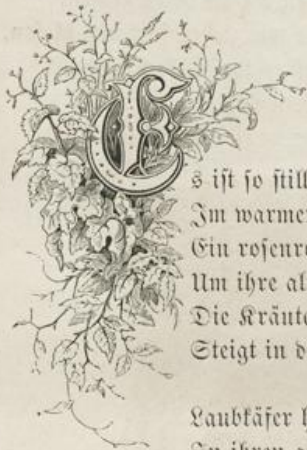 Es ist so still
Im warme
Ein rosenr
Um ihre al
Die Kräute
Steigt in d
Laubkäfer h